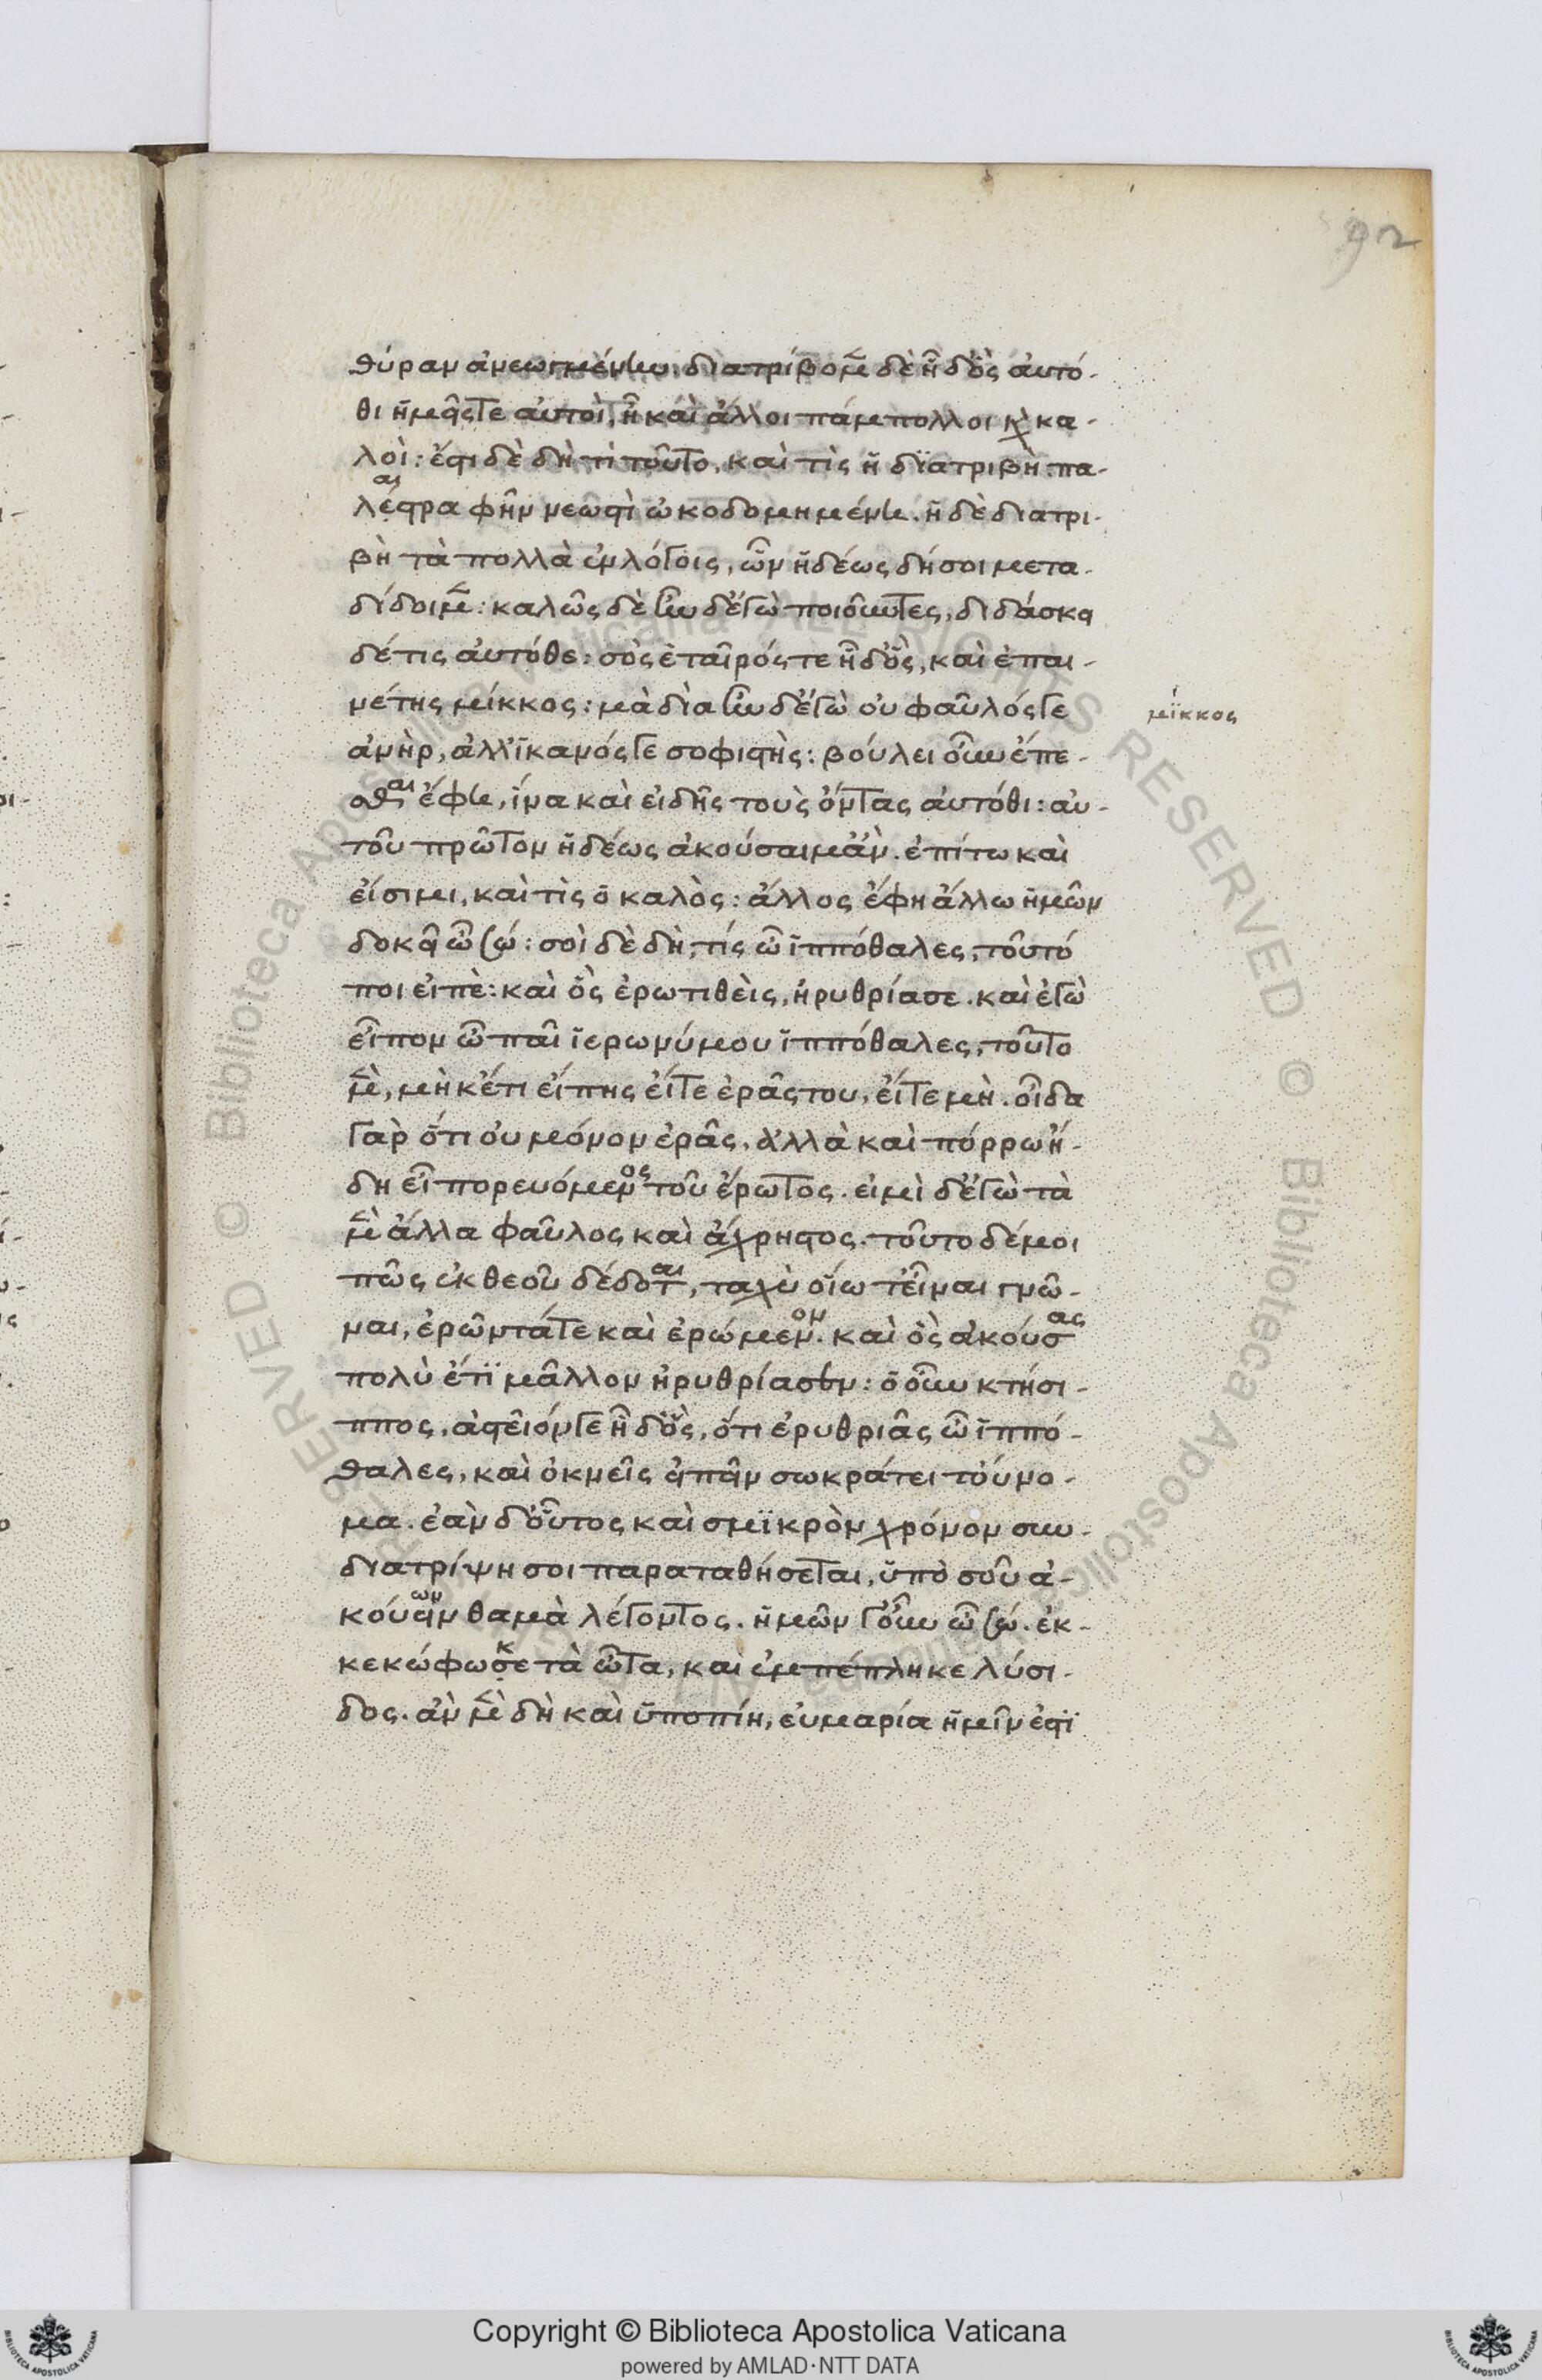 92
θύραν ἀνεωιμένην. διατρίβομεν δὲ ἦ δ' ὃς αὐτό-
θι ἡμεῖς τε αὐτοὶ, ἦ καὶ ἄλλοι πάμπολλοι καὶ κα-
λοὶ: ἔστι δὲ δὴ τί τοῦτο, καὶ τὶς ἡ διατριβή: πα-
λαίστρα φὴν νεωστὶ ὠκοδομημένη. ἡ δὲ διατρι-
βὴ τὰ πολλὰ ἐν λόγοις, ὧν ἡδέως δή σοι μετα-
δίδοιμεν: καλῶς δὲ ἦν δ' ἐγὼ ποιοῦντες, διδάσκει
δέ τις αὐτόθε: σὸς ἑταῖρός τε ἦ δ' ὃς, καὶ ἐπαι-
νέτης μίκκος: μὰ δία ἦν δ' ἐγὼ οὐ φαῦλός γε
μίκκος
ἀνὴρ, ἀλλ' ἱκανός γε σοφιστὴς: βούλει οὖν ἕπε-
σθαι ἔφη, ἵνα καὶ εἰδῇς τοὺς ὄντας αὐτόθι: αὐ-
τοῦ πρῶτον ἡδέως ἀκούσαιμ' ἂν. ἐπί τω καὶ
εἴσιμι, καὶ τὶς ὁ καλὸς: ἄλλος ἔφη ἄλλω ἡμῶν
δοκεῖ ὦ σώ: σοὶ δὲ δὴ, τίς ὦ ἱππόθαλες, τοῦτό
ποι εἰπὲ: καὶ ὃς ἐρωτιθεὶς, ἠρυθρίασε. καὶ ἐγὼ
εἶπον ὦ παῖ ἱερωνύμου ἱππόθαλες, τοῦτο
μὲν, μὴκέτι εἴπης εἴτε ἐρᾶς του, εἴτε μὴ. οἶδα
γὰρ ὅτι οὐ μόνον ἐρᾶς, ἀλλὰ καὶ πόρρω ἤ-
δη εἶ πορευόμενος τοῦ ἔρωτος. εἰμὶ δ' ἐγὼ τὰ
μὲν ἄλλα φαῦλος καὶ ἄχρηστος. τοῦτο δέ μοι
πῶς ἐκ θεοῦ δέδοται, ταχὺ οἵω τ' εἶναι γνῶ-
ναι, ἐρῶντά τε καὶ ἐρώμενον. καὶ ὃς ἀκούσας
πολὺ ἔτι μᾶλλον ἠρυθρίασεν: ὁ οὖν κτήσι-
ππος, ἀστεῖόν γε ἦ δ' ὃς, ὅτι ἐρυθριᾶς ὦ ἱππό-
θαλες, καὶ ὀκνεῖς εἰπεῖν σωκράτει τοὔνο-
μα. ἐὰν δ' οὗτος καὶ σμικρὸν χρόνον συν-
διατρίψη σοι παραταθήσεται, ὑπὸ σοῦ ἀ-
κούων θαμὰ λέγοντος. ἡμῶν γοῦν ὦ σώ. ἐκ-
κεκώφωκε τὰ ὦτα, καὶ ἐμπέπληκε λύσι-
δος. ἀν μὲν δὴ καὶ ὑποπίη, εὐμαρία ἡμῖν ἐστὶ
Copyright © Biblioteca Apostolica Vaticana
powered by AMLAD·NTT DATA